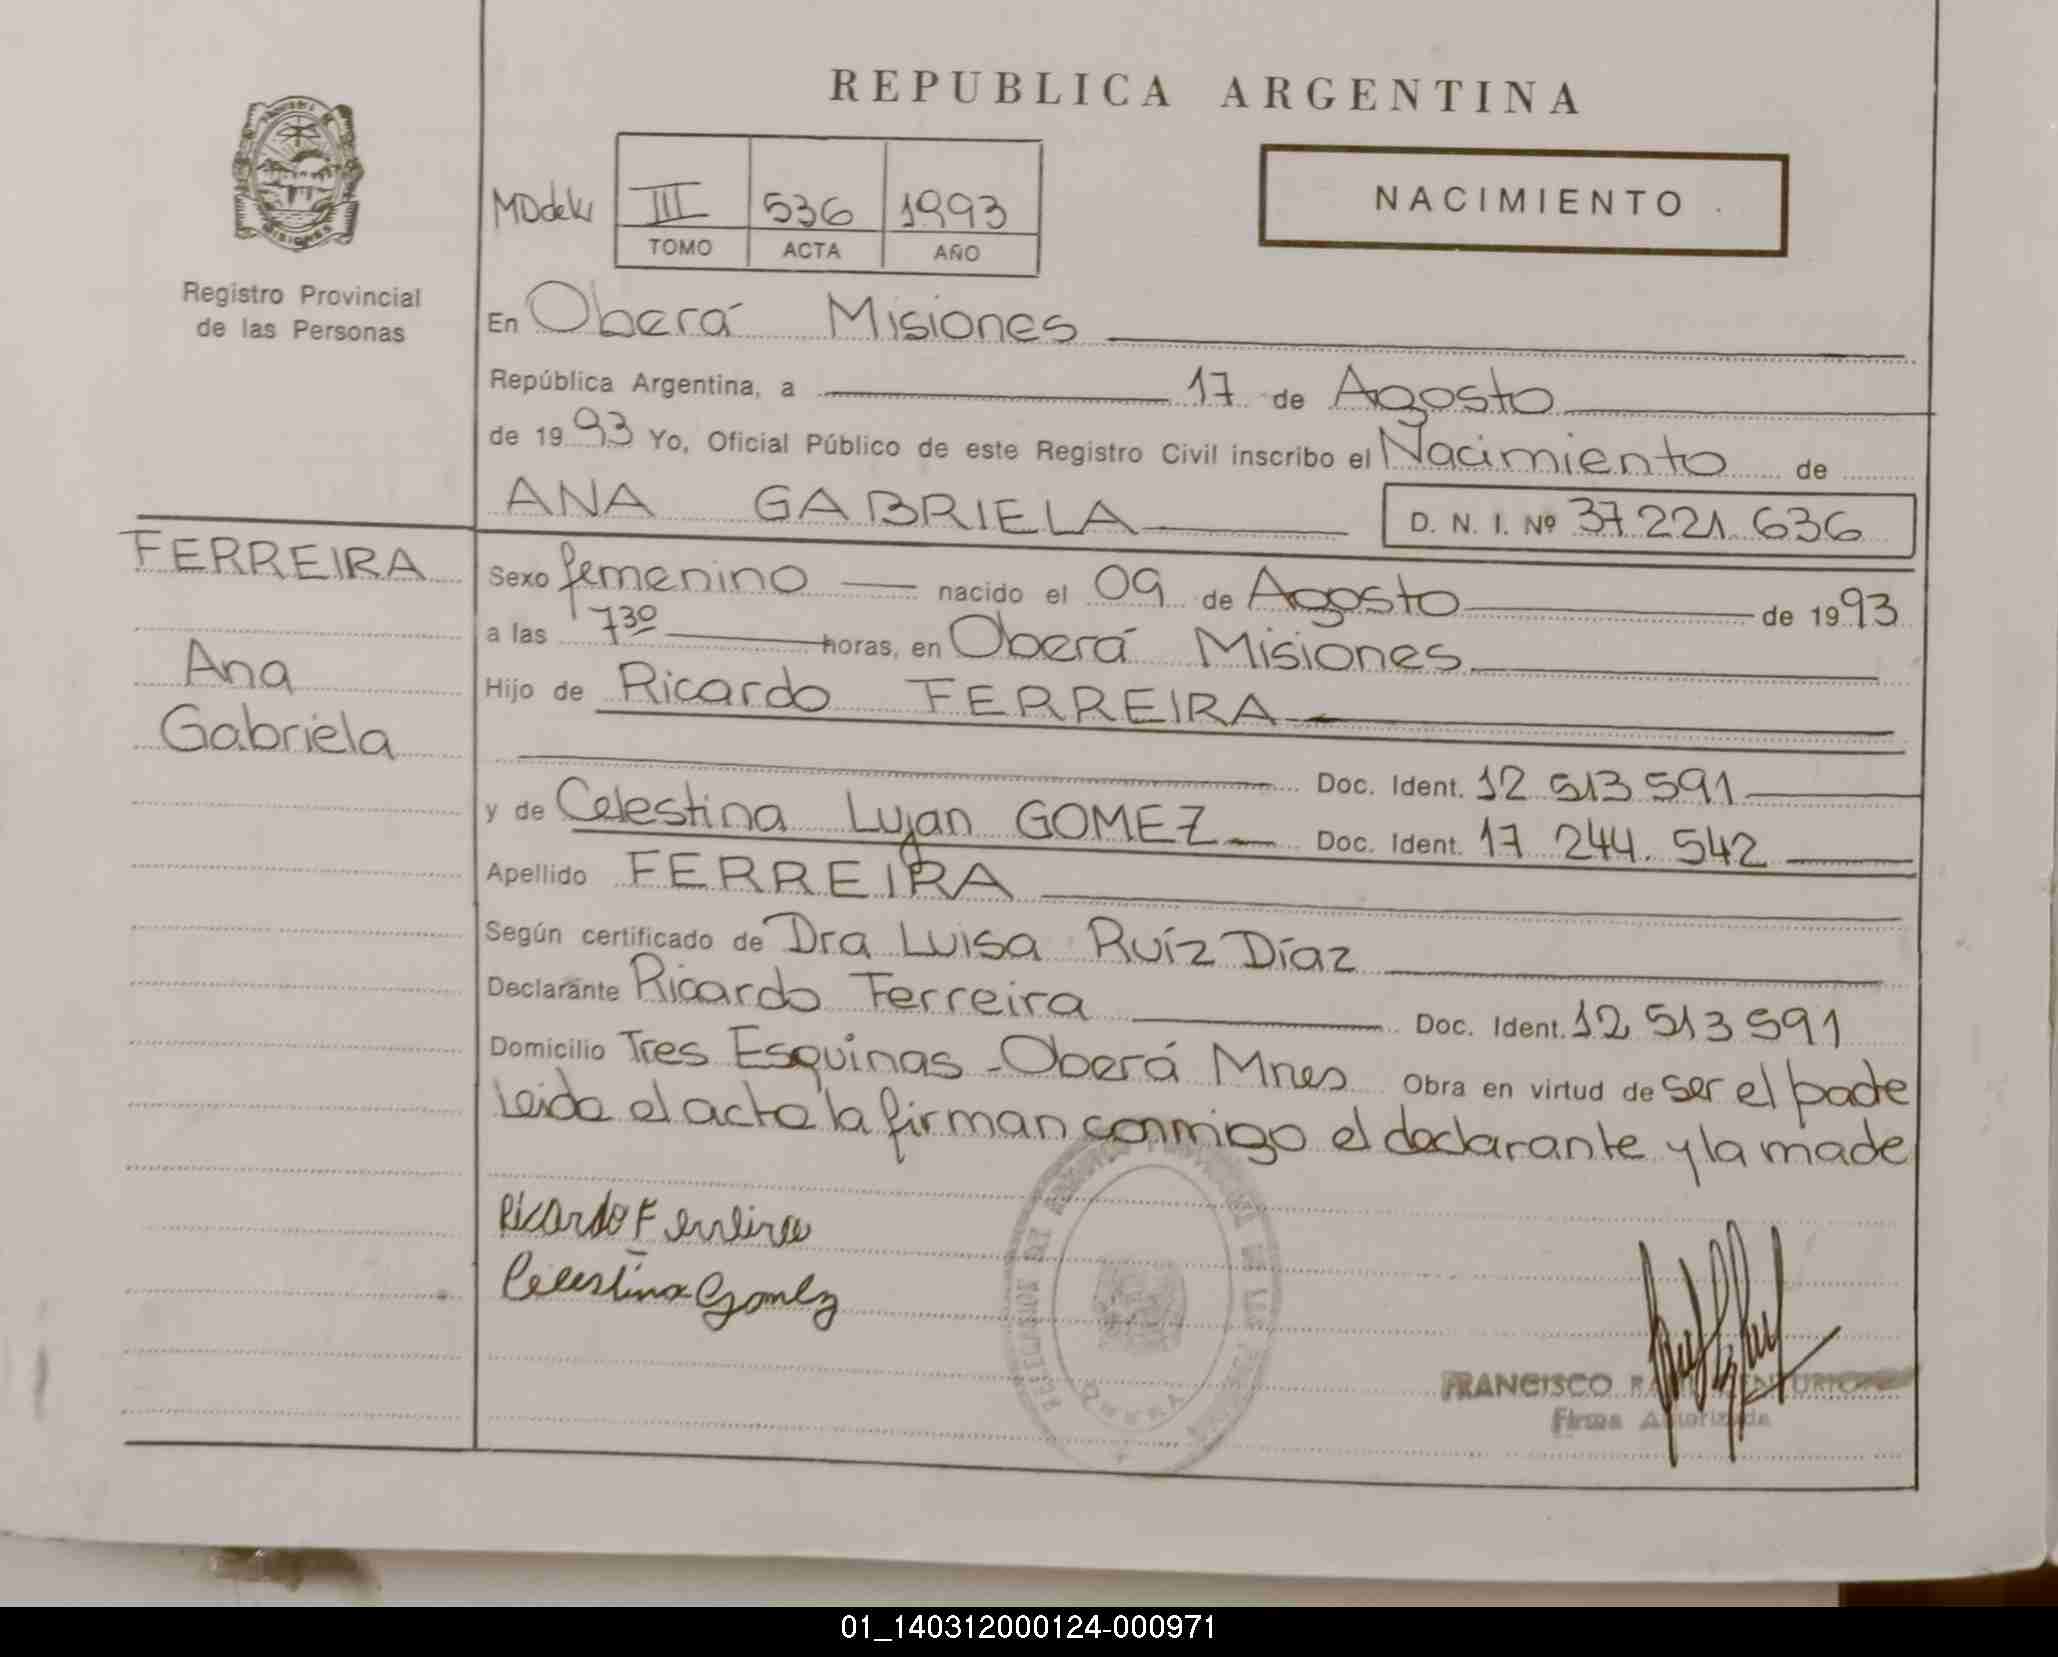 REPUBLICA ARGENTINA
NACIMIENTO
III 536 1993
TOMO ACTA AÑO
Registro Provincial
de las Personas
En Oberá Misiones
República Argentina, a 17 de Agosto
de 1993 Yo, Oficial Público de este Registro Civil inscribo el Nacimiento de
ANA GABRIELA D. N. I. Nº 37.221.636
FERREIRA
Ana
Gabriela
Sexo femenino nacido el 09 de Agosto de 1993
a las 7 30 horas, en Oberá Misiones
Hijo de Ricardo FERREIRA
Doc. Ident. 12 513 591
y de Celestina Lujan GOMEZ Doc. Ident. 17 244.542
Apellido FERREIRA
Según certificado de Dra Luisa Ruíz Díaz
Declarante Ricardo Ferreira Doc. Ident. 12 513 591
Domicilio Tres Esquinas - Oberá Mnes Obra en virtud de ser el padre
Leida el acta la firman conmigo el declarante y la madre
Ricardo Ferreira
Celestina Gomez
FRANCISCO
Firma Autorizada
01_140312000124-000971